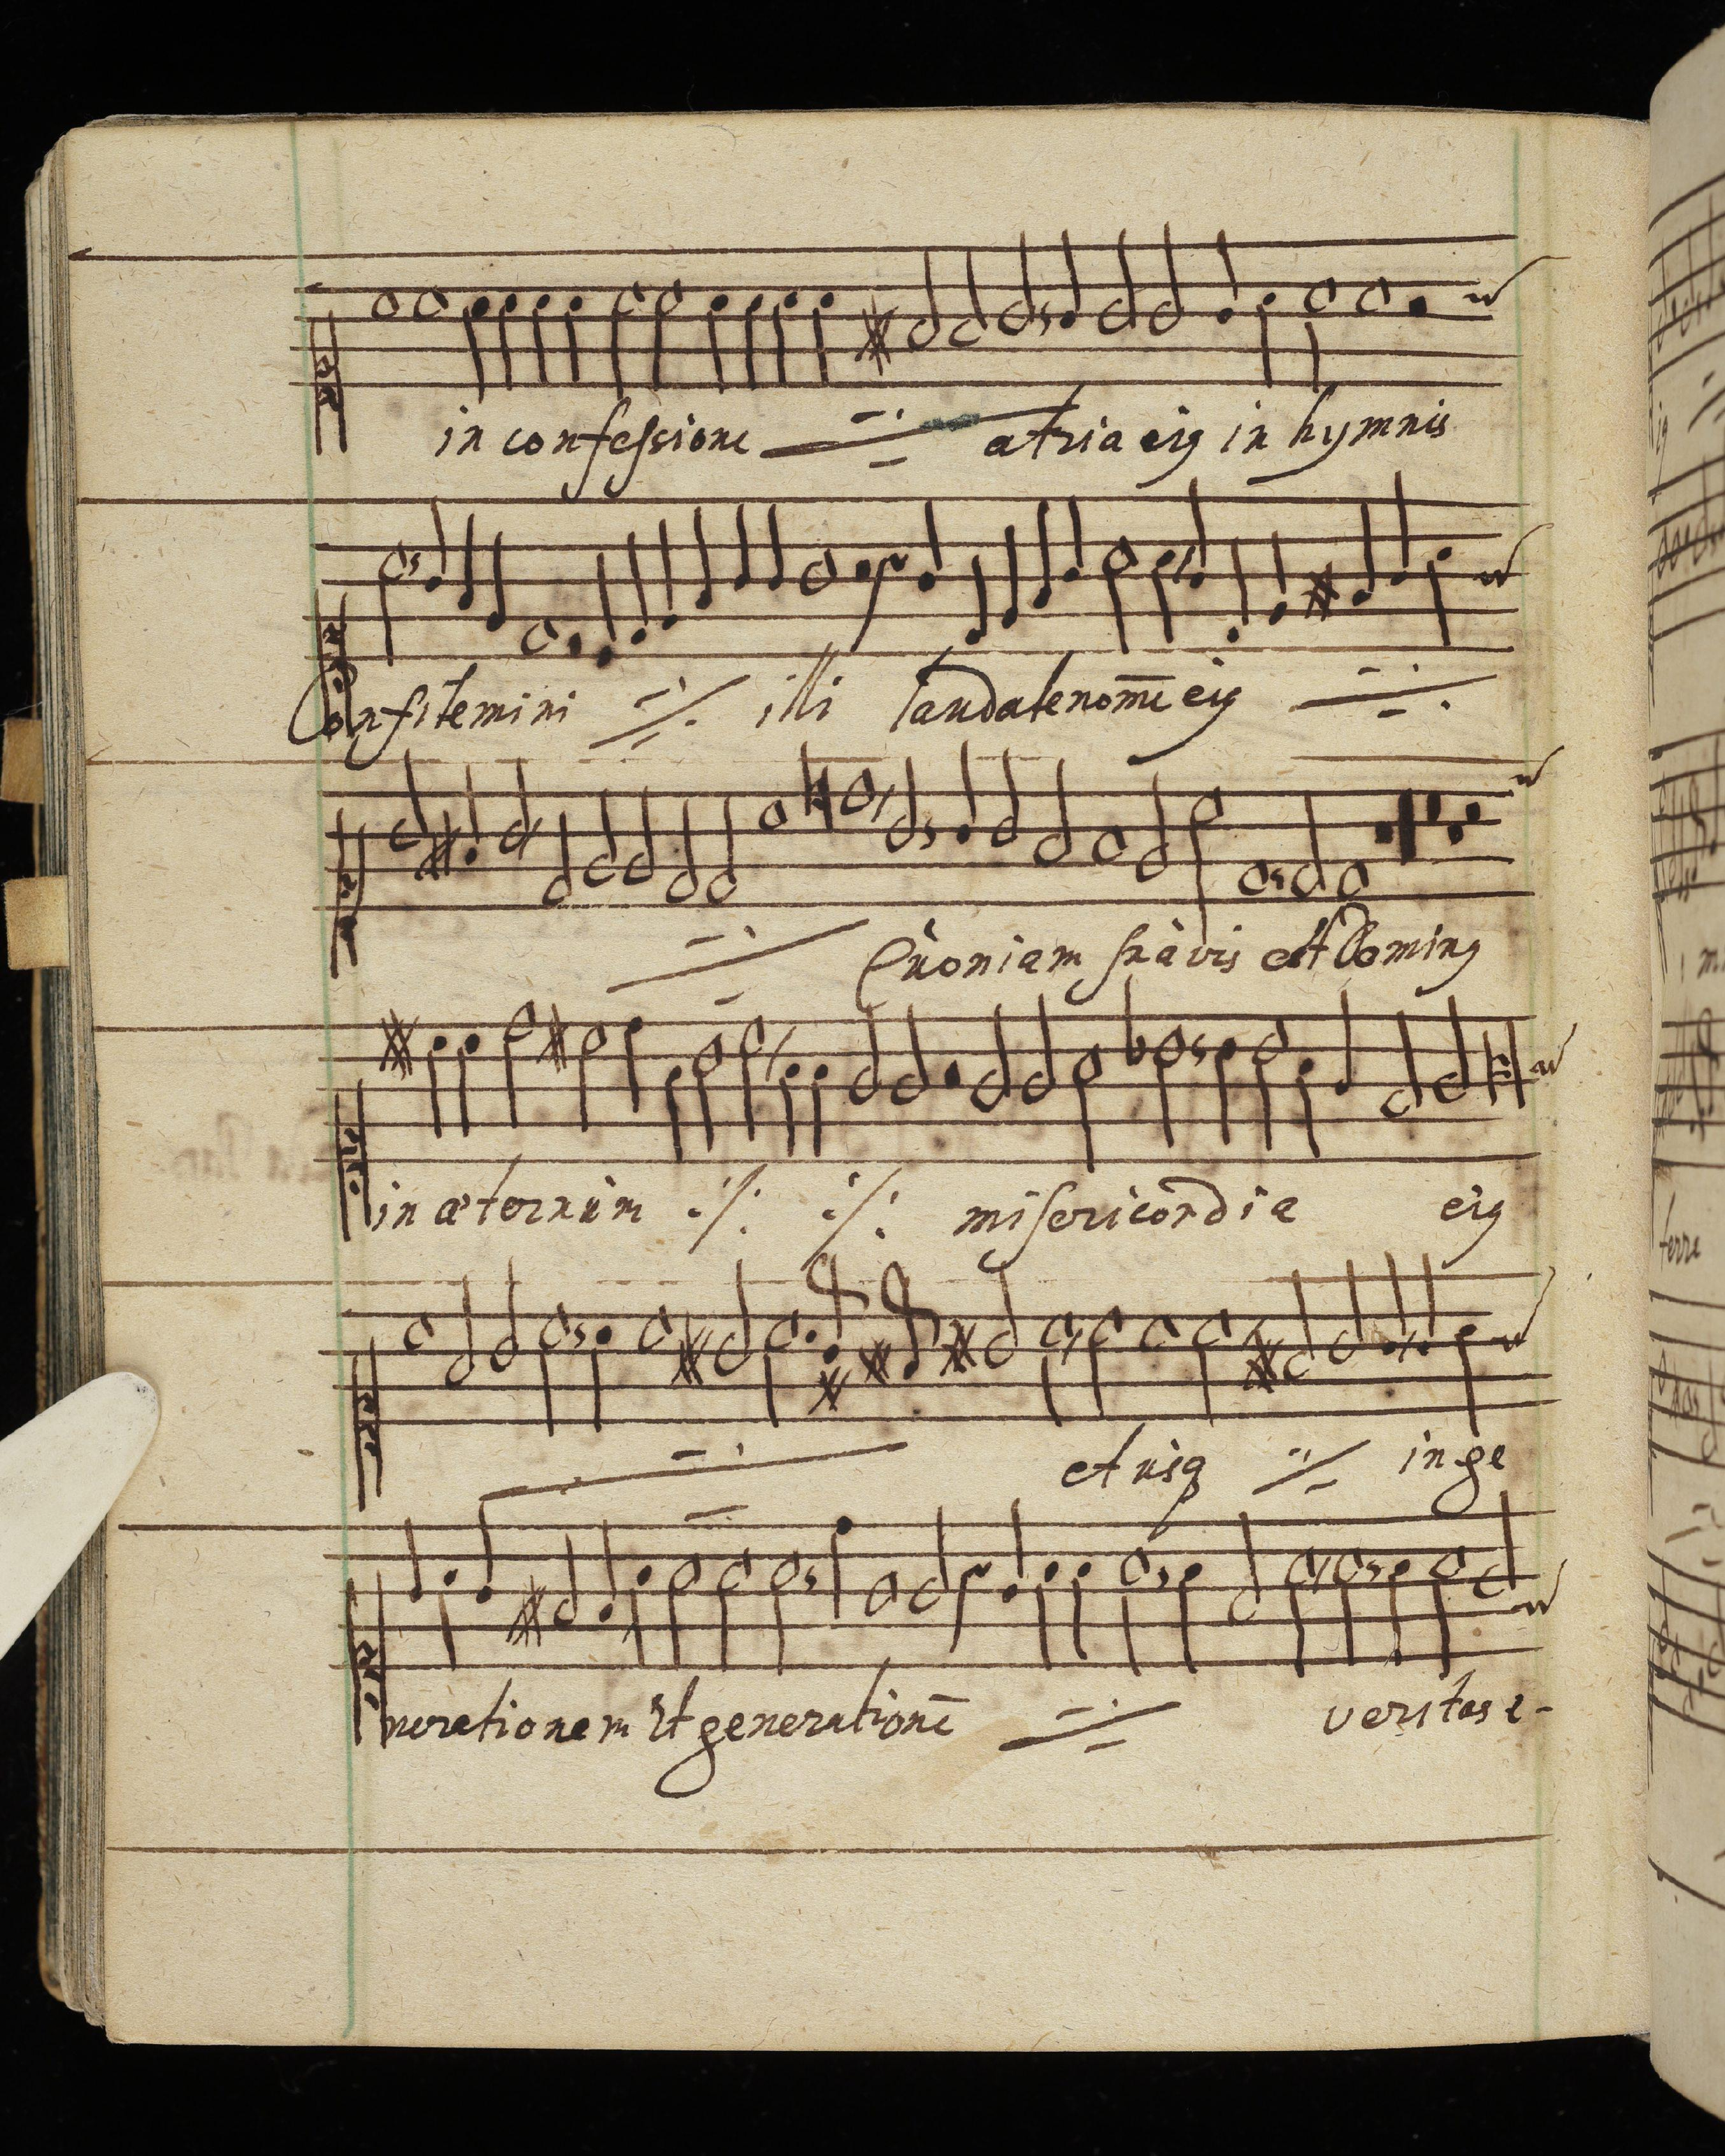 in confeſsione atria eiꝰ in hymnis
Confitemini illi laudate nom̄e eiꝰ
Quoniam ſuavis est Dominꝰ
in æternum miſericordia eiꝰ
et usq in ge
nerationem Et generationē veritas e-